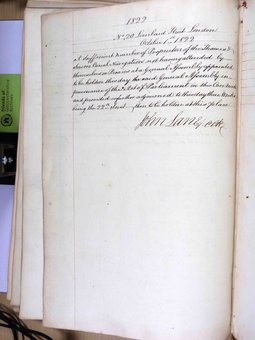 1822
No. 20 Lombard Street London
October 1st 1822
A sufficient number of Proprietors of the Thames &
Severn Canal Navigation not having attended by
themselves or Proxies at a General Assembly appointed
to be holden this day the said General Assembly in
pursuance of the Act of Parliament in this Case made
and provided is further adjourned to this day three Weeks
being the 22nd Inst. then to be holden at this place
John Lane Clk